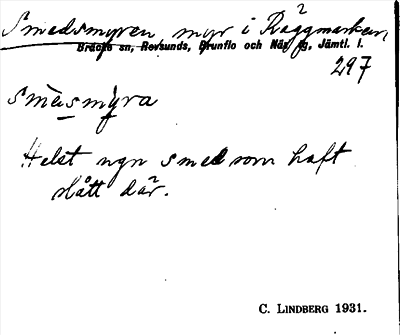 Smedsmyren myr i Raggmarken,
Bräcke sn, Revsunds, Brunflo och Näs tg, Jämtl. l.
297
smèsmy̆ra
Helst ngn smed som haft
slått där.
C. LINDBERG 1931.